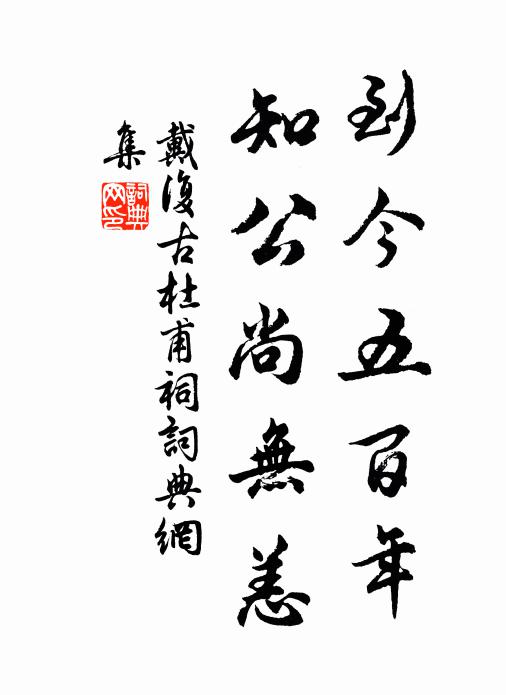 到今五百年
知公尚無恙
戴復古杜甫祠詞典網
集
詞典
网印